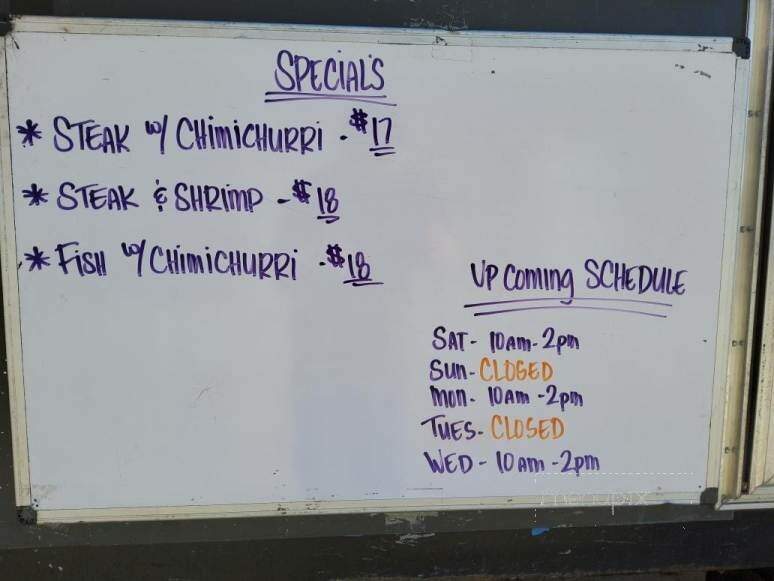 SPECIALS
* STEAK w/ CHIMICHURRI - $17
* STEAK & SHRIMP - $18
* FISH w/ CHIMICHURRI - $18
UPCOMING SCHEDULE
SAT - 10am - 2pm
SUN - CLOSED
MON - 10am - 2pm
TUES - CLOSED
WED - 10am - 2pm